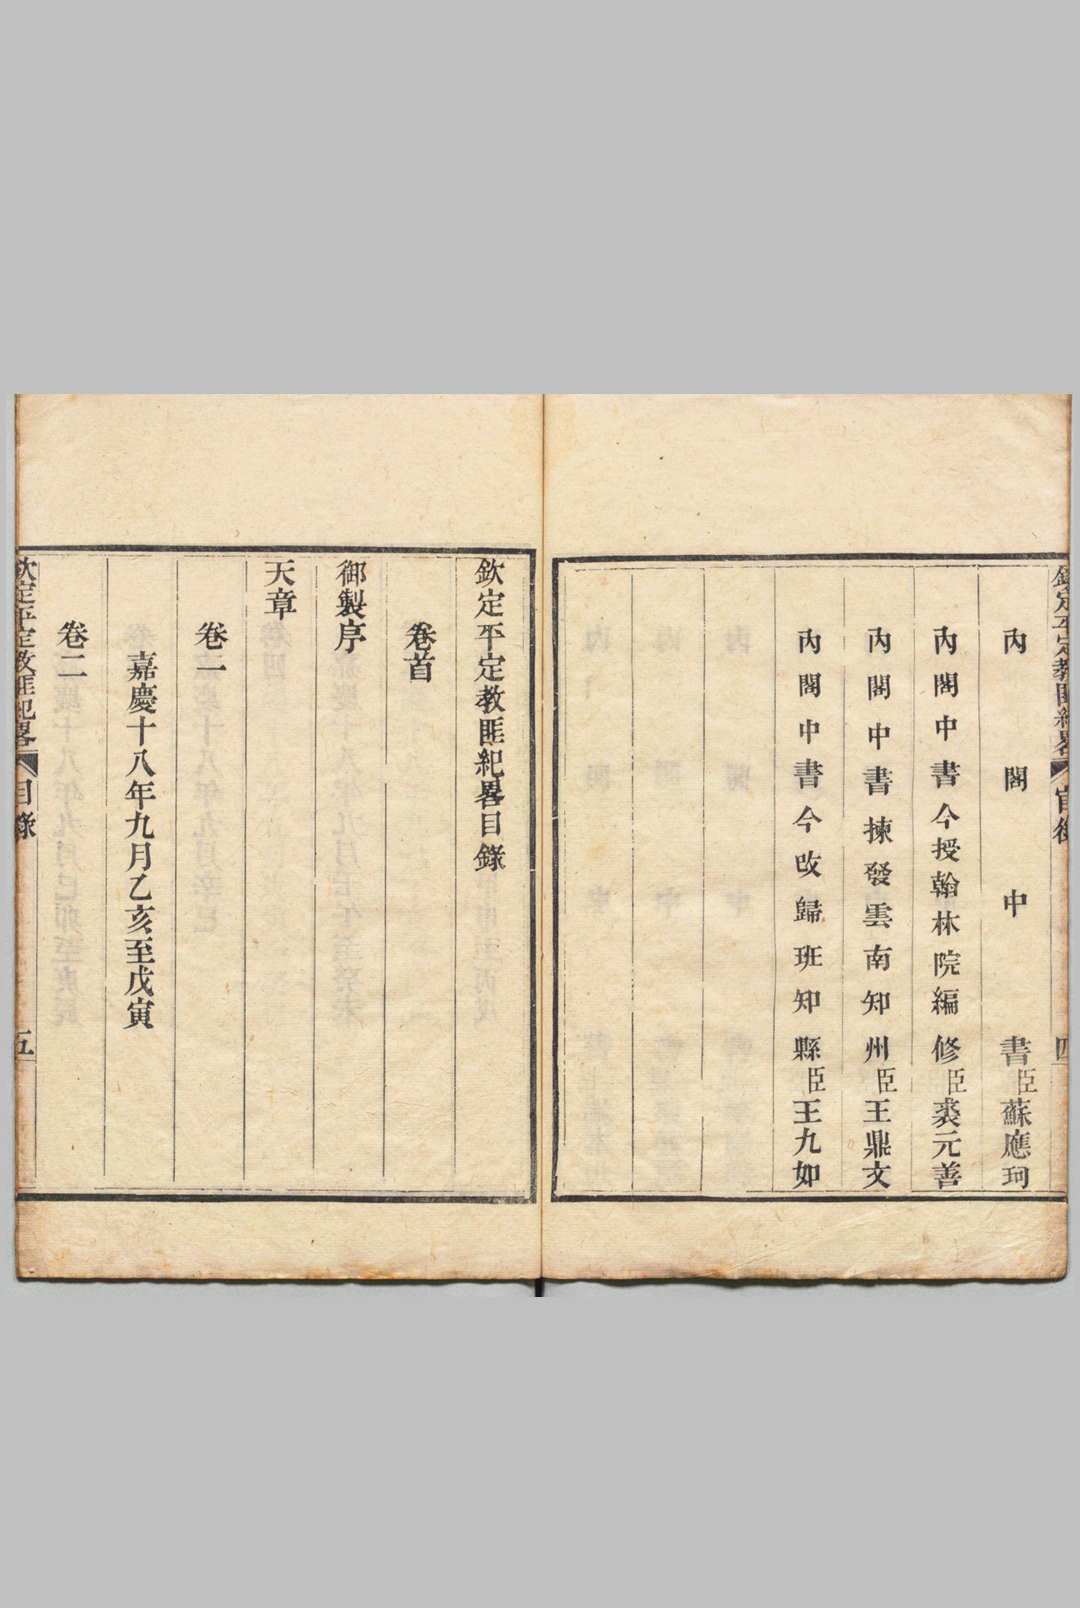 內閣中書臣蘇應珂
內閣中書今授翰林院編修臣裘元善
內閣中書揀發雲南知州臣王鼎文
內閣中書今改歸班知縣臣王九如
欽定平定教匪紀畧目錄
卷首
御製序
天章
卷一
嘉慶十八年九月乙亥至戊寅
卷二
欽定平定教匪紀畧 目錄 五